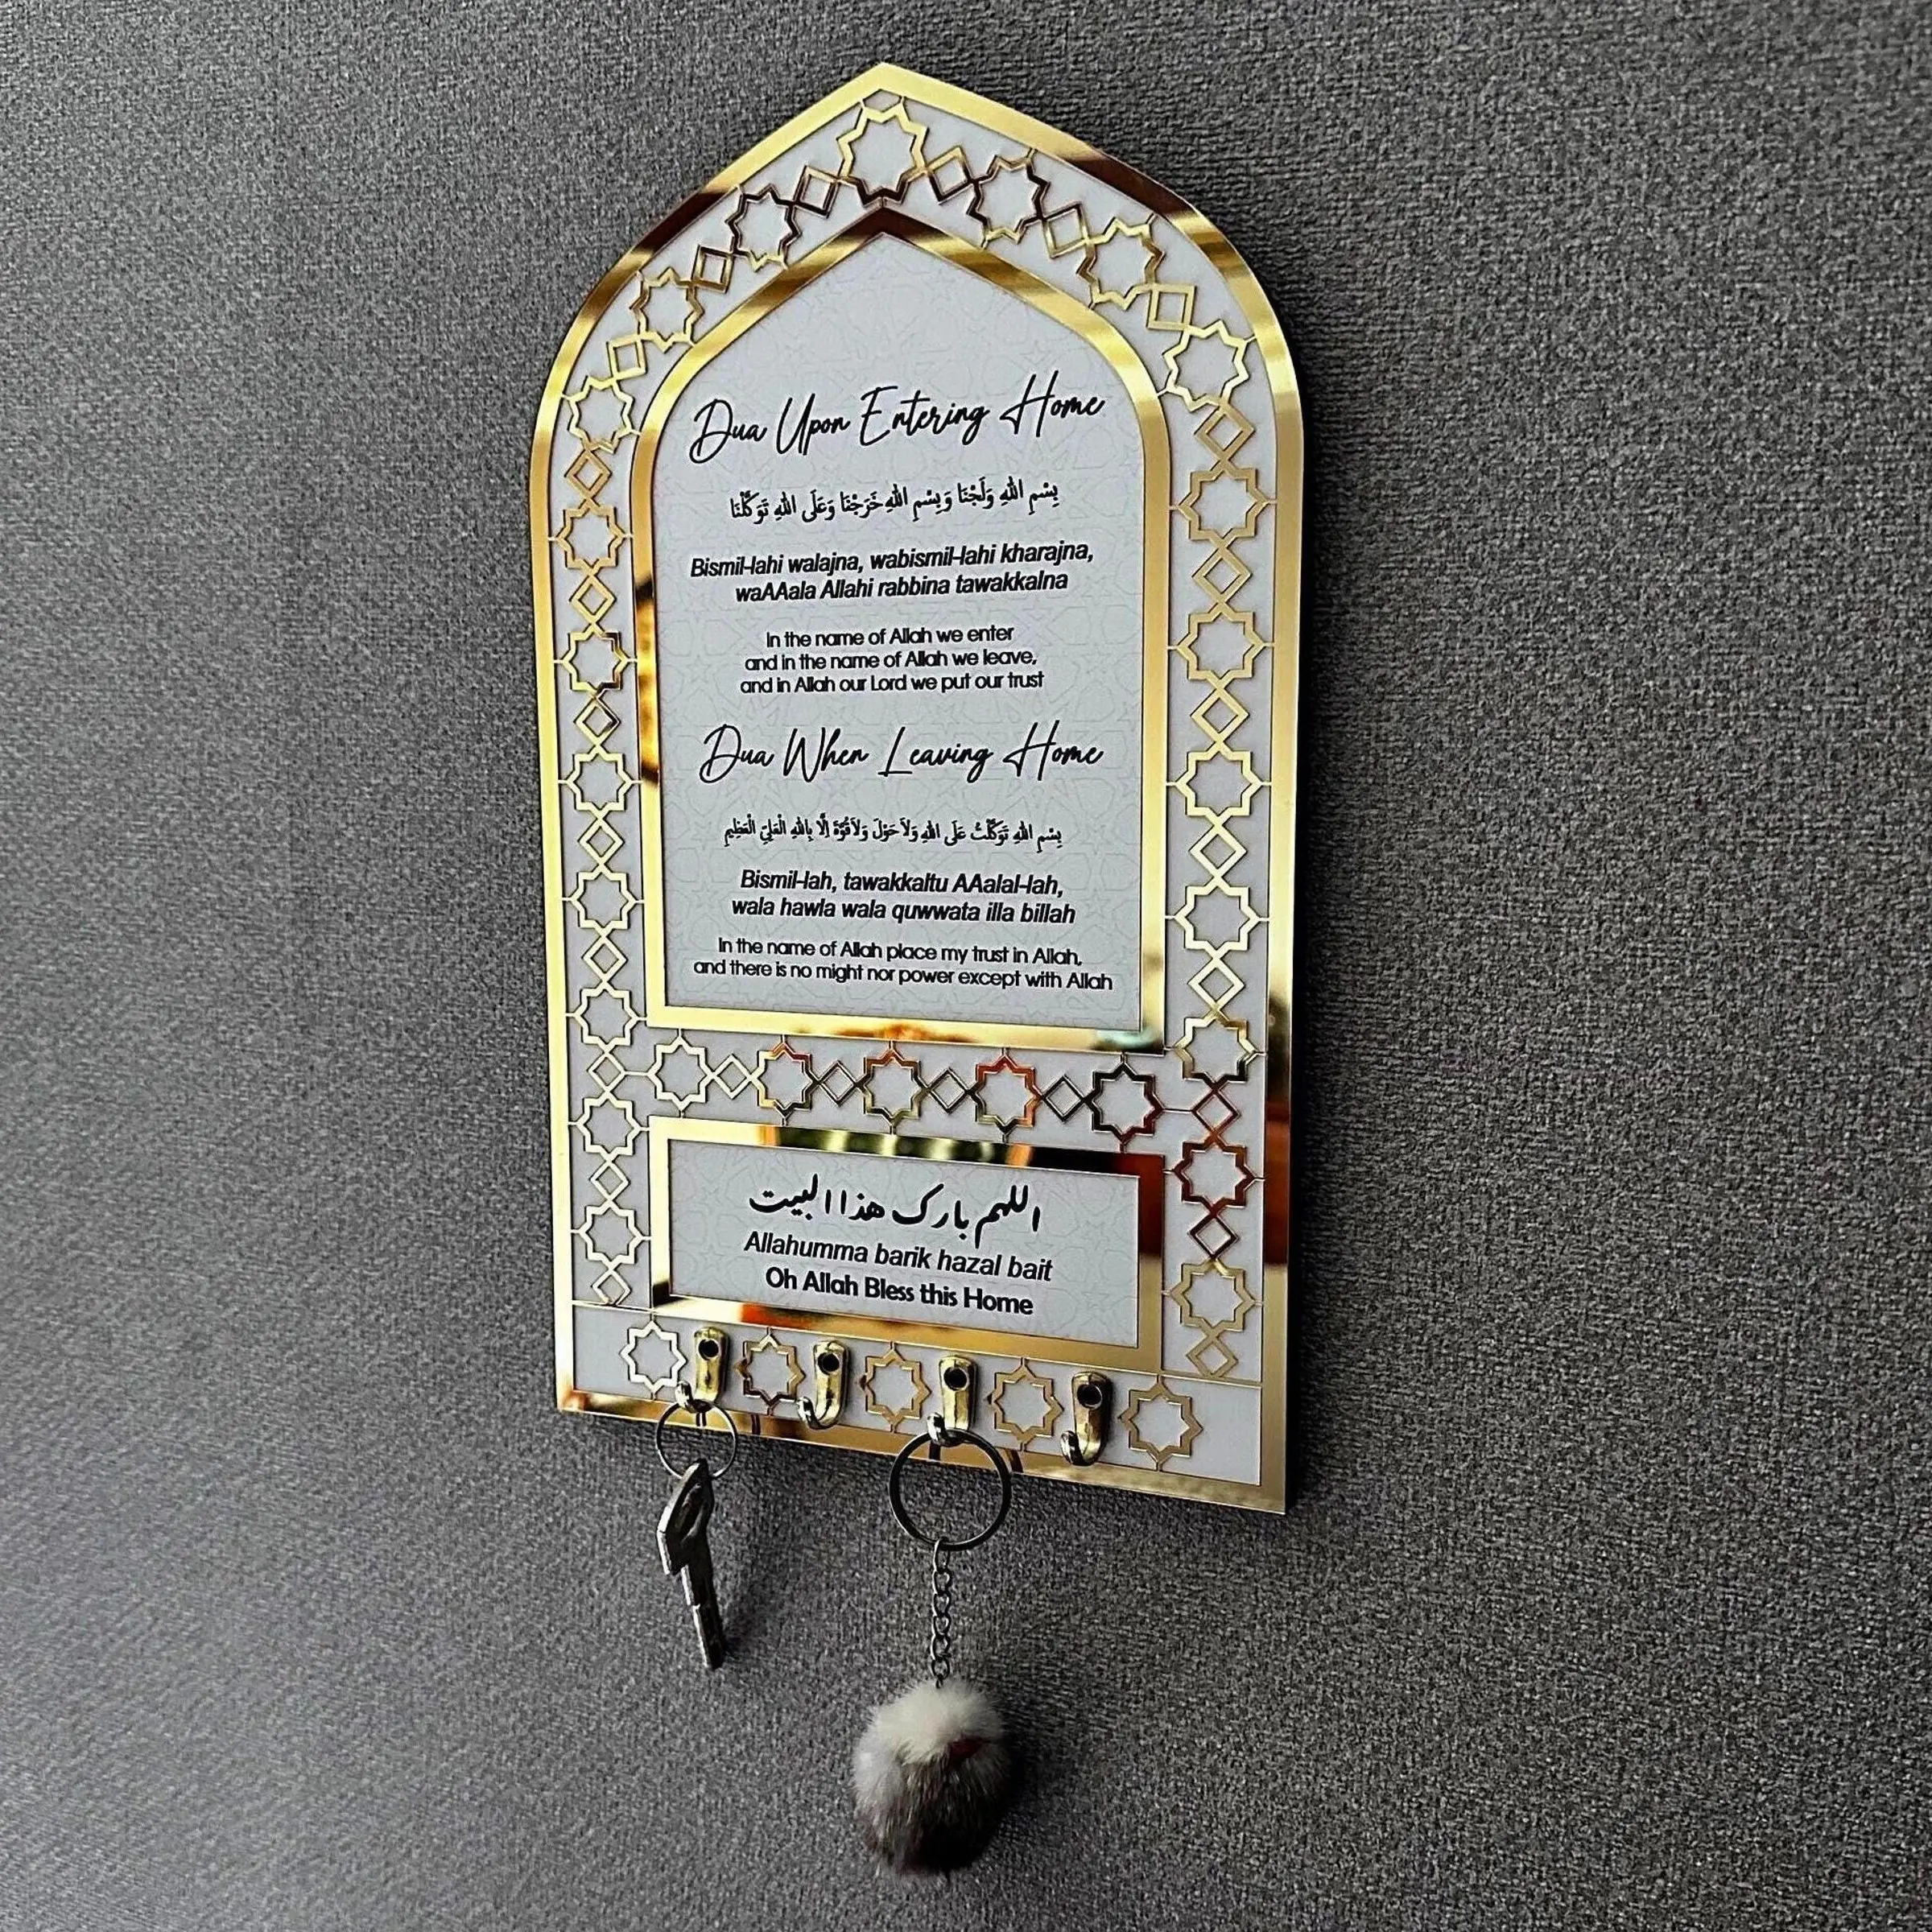 Dua Upon Entering Home
بِسْمِ اللهِ وَلَجْنَا وَبِسْمِ اللهِ خَرَجْنَا وَعَلَى اللهِ تَوَكَّلْنَا
Bismil-lahi walajna, wabismil-lahi kharajna,
waAAala Allahi rabbina tawakkalna
In the name of Allah we enter
and in the name of Allah we leave,
and in Allah our Lord we put our trust
Dua When Leaving Home
بِسْمِ اللهِ تَوَكَّلْتُ عَلَى اللهِ وَلاَ حَوْلَ وَلاَ قُوَّةَ اِلَّا بِاللهِ الْعَلِيِّ الْعَظِيمِ
Bismil-lah, tawakkaltu AAalal-lah,
wala hawla wala quwwata illa billah
In the name of Allah place my trust in Allah,
and there is no might nor power except with Allah
اللهم بارك هذا البيت
Allahumma barik hazal bait
Oh Allah Bless this Home